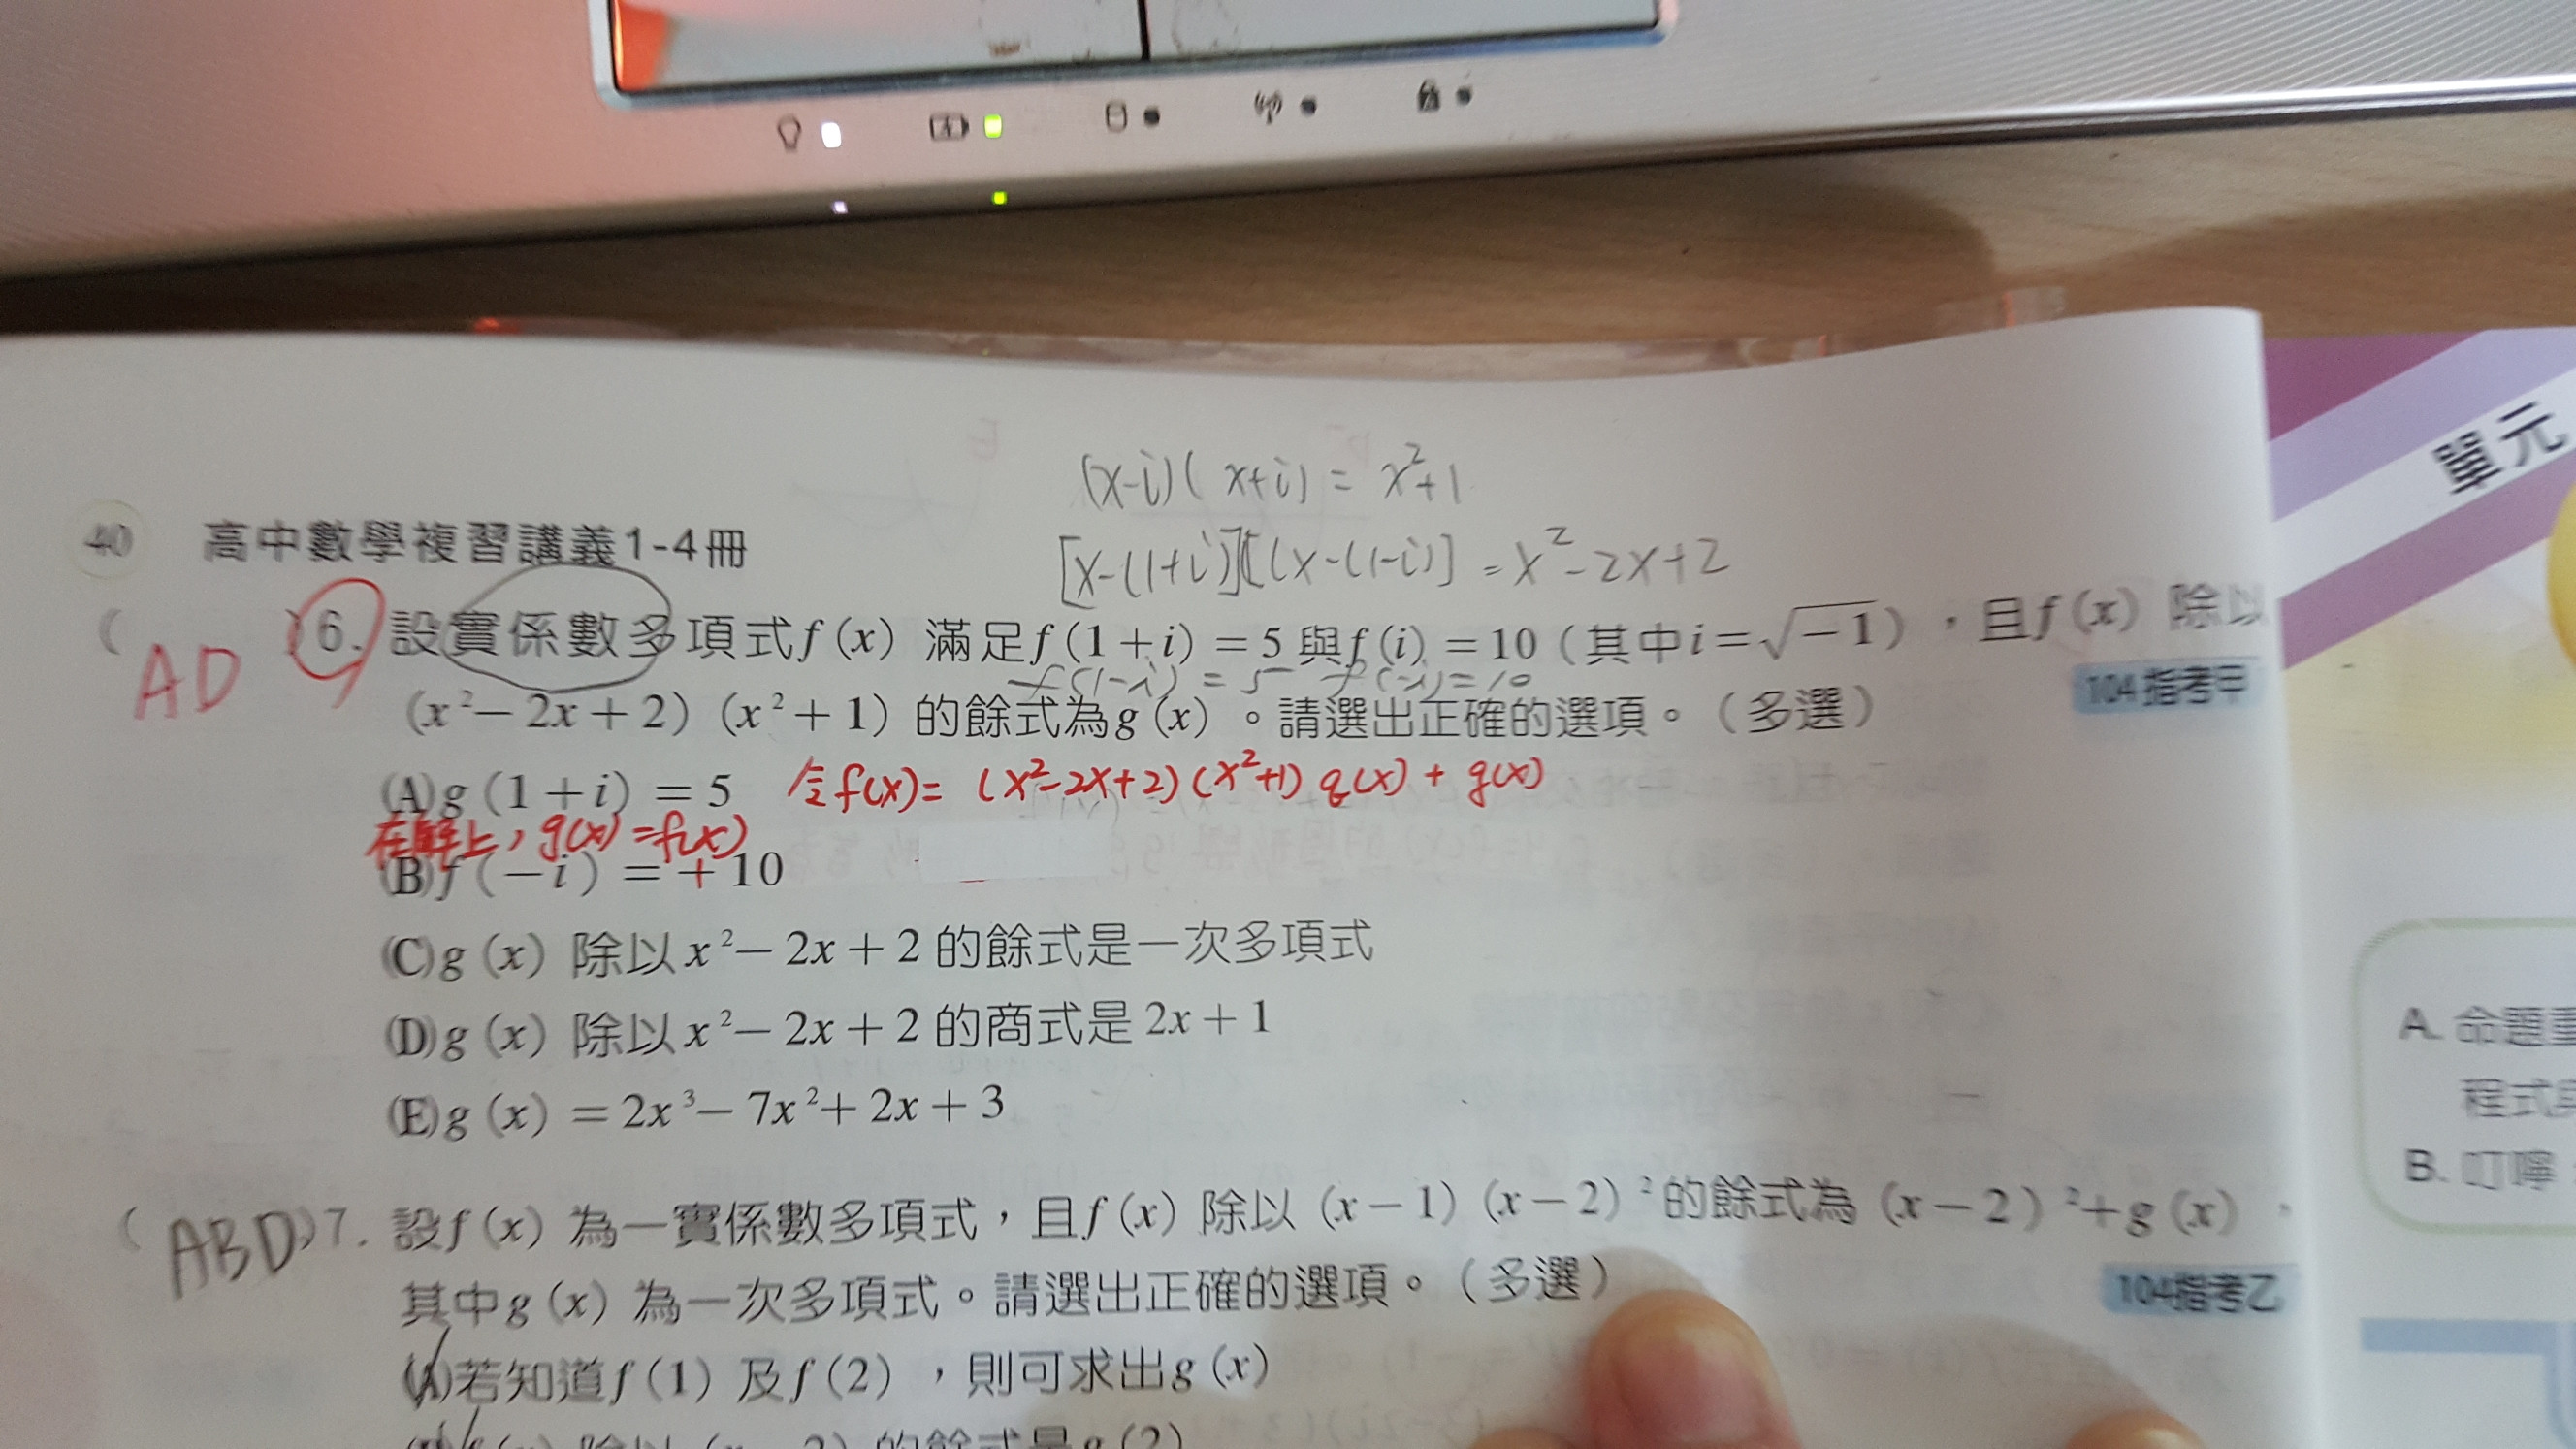 (x-i)(x+i) = x²+1
40 高中數學複習講義1-4冊
[x-(1+i)][(x-(1-i)] = x²-2x+2
單元
( AD )6. 設實係數多項式f(x) 滿足f(1+i)=5與f(i)=10(其中i=√-1),且f(x) 除以
f(1-i)=5 f(-i)=10
(x²-2x+2)(x²+1) 的餘式為g(x)。請選出正確的選項。(多選)
104指考甲
(A)g(1+i)=5 令f(x)= (x²-2x+2)(x²+1) q(x) + g(x)
在解上,g(x)=f(x)
(B)f(-i)=+10
(C)g(x) 除以x²-2x+2的餘式是一次多項式
(D)g(x) 除以x²-2x+2的商式是2x+1
(E)g(x)=2x³-7x²+2x+3
A. 命題
程式
B. 叮嚀
( ABD )7. 設f(x) 為一實係數多項式,且f(x) 除以 (x-1)(x-2)²的餘式為 (x-2)²+g(x),
其中g(x) 為一次多項式。請選出正確的選項。(多選)
104指考乙
(A)若知道f(1) 及f(2),則可求出g(x)
的餘式是g(2)